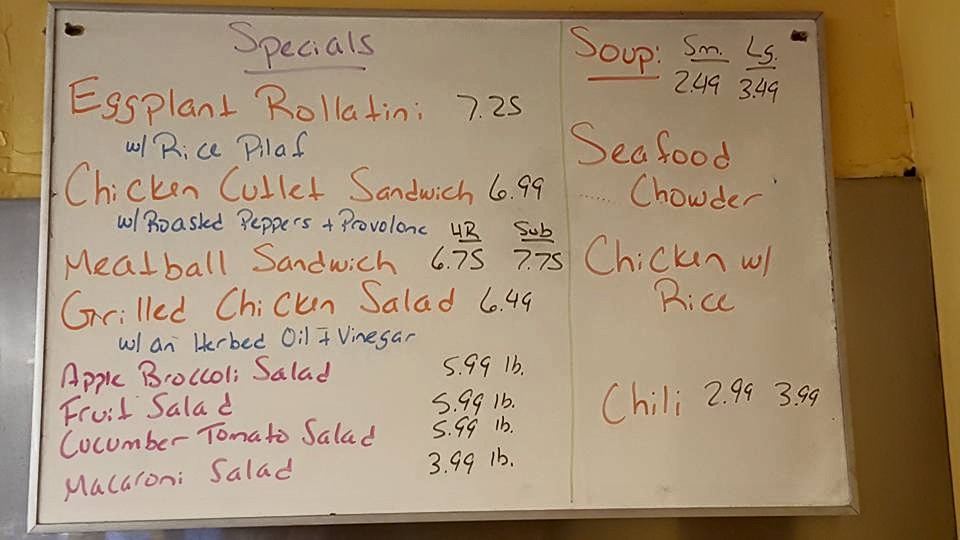 Specials
Eggplant Rollatini 7.25
w/ Rice Pilaf
Chicken Cutlet Sandwich 6.99
w/ Roasted Peppers + Provolone
HR Sub
Meatball Sandwich 6.75 7.75
Grilled Chicken Salad 6.49
w/ an Herbed Oil + Vinegar
Apple Broccoli Salad 5.99 lb.
Fruit Salad 5.99 lb.
Cucumber Tomato Salad 5.99 lb.
Macaroni Salad 3.99 lb.
Soup: Sm. Lg.
2.49 3.49
Seafood
Chowder
Chicken w/
Rice
Chili 2.99 3.99